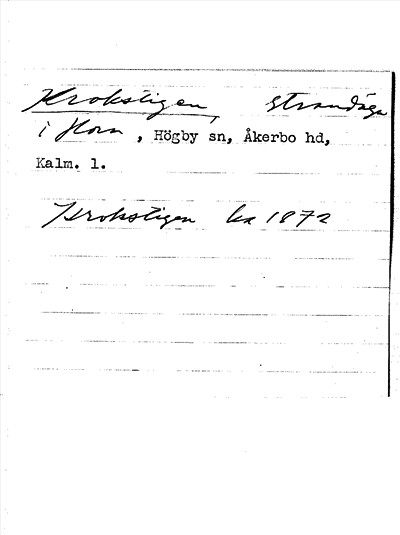 Krokstigen, strandäga
i Horn, Högby sn, Åkerbo hd,
Kalm. l.
Krokstigen ka 1872